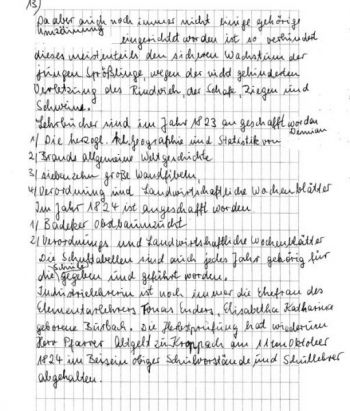 13)
Da aber auch noch immer nicht einige gehörige
Umzäunung eingerichtet worden ist so verhindert
dieses meistenteils den sicheren Wachstum der
jungen Sprößlinge, wegen der nicht gehinderten
Verletzung des Rindvieh, der Schafe, Ziegen und
Schweine.
Lehrbücher sind im Jahr 1823 angeschafft worden
1/ Die herzogl. Geographie und Statistik von Demian
2/ Brands allgemeine Weltgeschichte
3/ siebenzehn große Wandfibeln
4/ Verordnung und Landwirtschaftliche Wochenblätter
Im Jahr 1824 ist angeschafft worden
1/ Bädeker Obstbaumzucht
2/ Verordnungs und Landwirtschaftliche Wochenblätter
Die Schultabellen sind auch jedes Jahr gehörig für
die Schule gegeben und geführt worden.
Industrielehrerin ist noch immer die Ehefrau des
Elementarlehrers Jonas Enders, Elisabetha Katharina
geborene Bürbach. Die Herbstprüfung hat wiederum
Herr Pfarrer Altgelt zu Kroppach am 11ten Oktober
1824 im Beisein obiger Schulvorstände und Schullehrer
abgehalten.